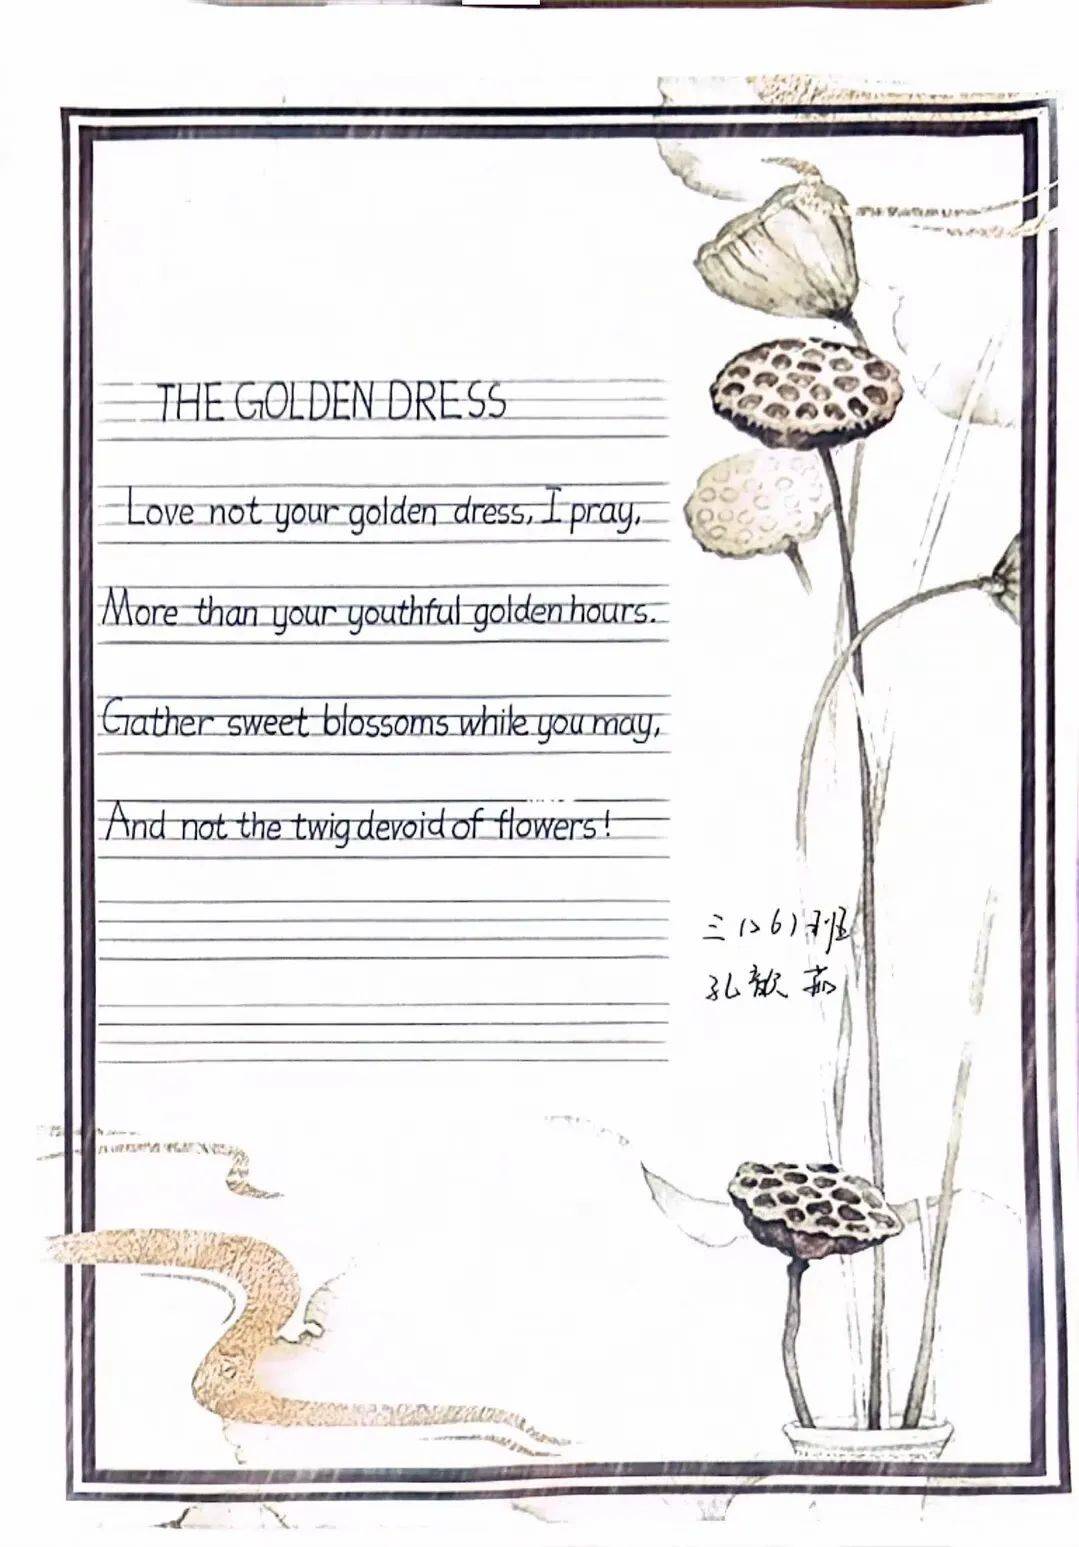 THE GOLDEN DRESS
Love not your golden dress, I pray,
More than your youthful golden hours.
Gather sweet blossoms while you may,
And not the twig devoid of flowers!
三(26)班
孔歆茹